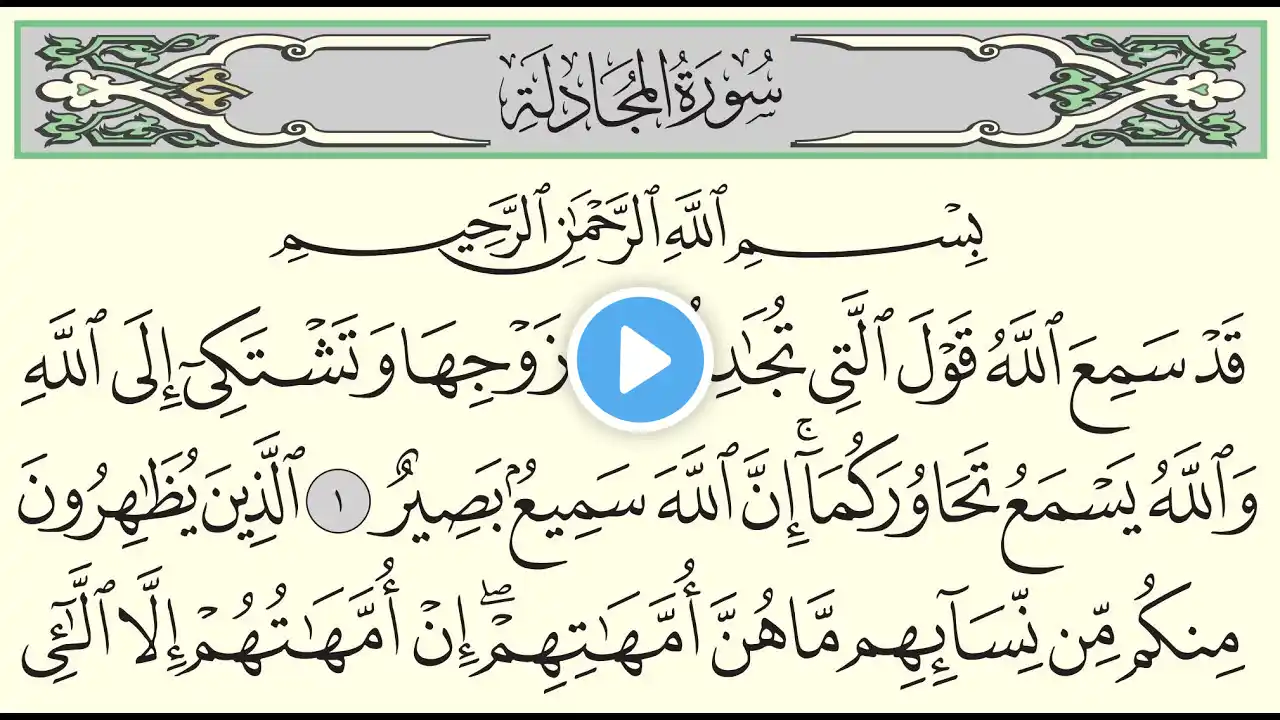 سُورَةُ المُجَادلَةِ
بِسْمِ ٱللَّهِ ٱلرَّحْمَٰنِ ٱلرَّحِيمِ
قَدْ سَمِعَ ٱللَّهُ قَوْلَ ٱلَّتِى زَوْجِهَا وَتَشْتَكِىٓ إِلَى ٱللَّهِ
وَٱللَّهُ يَسْمَعُ تَحَاوُرَكُمَآ ۚ إِنَّ ٱللَّهَ سَمِيعٌۢ بَصِيرٌ ١ ٱلَّذِينَ يُظَٰهِرُونَ
مِنكُم مِّن نِّسَآئِهِم مَّا هُنَّ أُمَّهَٰتِهِمْ ۖ إِنْ أُمَّهَٰتُهُمْ إِلَّا ٱلَّٰٓـِٔى